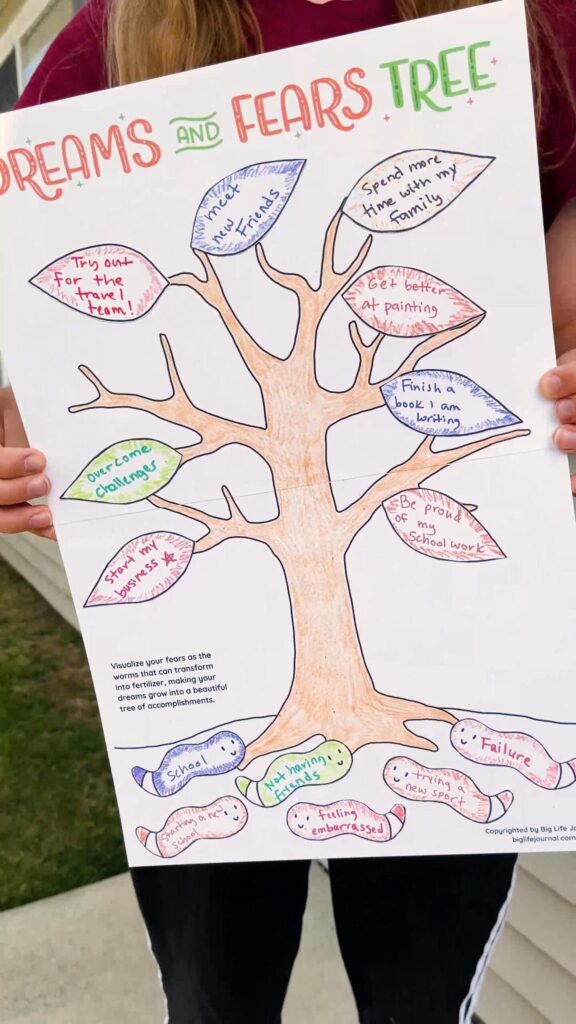 DREAMS AND FEARS TREE
meet
new
Friends
Spend more
time with my
family
Try out
for the
travel
team!
Get better
at painting
Finish a
book I am
writing
Overcome
challenges
Be proud
of my
School work
Start my
business
Visualize your fears as the
worms that can transform
into fertilizer, making your
dreams grow into a beautiful
tree of accomplishments.
School
Not having
friends
trying a
new sport
Failure
Starting a new
School
feeling
embarrassed
Copyrighted by Big Life
biglifejournal.com